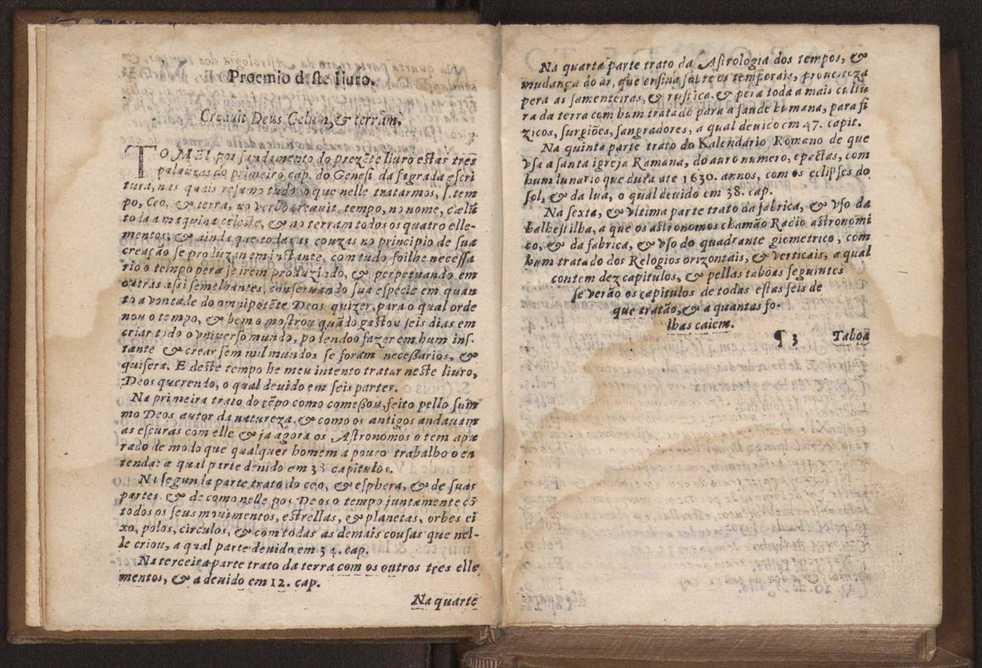 Proemio deste liuro.
Creauit Deus Celum, & terram.
TOMEI por fundamento do prezẽte liuro estas tres
palauras do primeiro cap. do Genesi da sagrada escri
tura, nas quais resumo tudo o que nelle tratarmos, s. tem
po, Ceo, & terra, no verbo creauit, tempo, no nome, cælũ
toda a maquina celeste, & no terram todos os quatro elle-
mentos, & ainda que todas as couzas no principio de sua
creação se produziram em instante, com tudo foilhe necessa
rio o tempo pera se irem produzindo, & perpetuando em
outras assi semelhantes, conseruando sua especie em quan
to a vontade do omnipotẽte Deos quizer, para o qual orde
nou o tempo, & bem o mostrou quãdo gastou seis dias em
criar todo o vniuerso mundo, podendoo fazer em hum ins-
tante & crear sem mil mundos se foram necessarios, &
quisera. E deste tempo he meu intento tratar neste liuro,
Deos querendo, o qual deuido em seis partes.
Na primeira trato do tẽpo como comessou, feito pello sum
mo Deos autor da natureza, & como os antigos andauam
as escuras com elle & ja agora os Astronomos o tem apu
rado de modo que qualquer homem a pouco trabalho o en
tenda: a qual parte deuido em 38 capitulos.
Na segunda parte trato do ceo, & esphera, & de suas
partes & de como nelle pos Deos o tempo juntamente cõ
todos os seus mouimentos, estrellas, & planetas, orbes ei
xo, polos, circulos, & com todas as demais cousas que nel-
le criou, a qual parte deuido em 54. cap.
Na terceira parte trato da terra com os outros tres elle
mentos, & a deuido em 12. cap.
Na quarte
Na quarta parte trato da Astrologia dos tempos, &
mudança do ar, que ensina sobre os temporais,
pera as samenteiras, & rustica & pera toda a mais cultu
ra da terra com hum tratado para a saude humana, para fi
zicos, surgiões, sangradores, a qual deuido em 47. capit.
Na quinta parte trato do Kalendario Romano de que
vsa a santa igreja Romana, do auro numero, epactas, com
hum lunario que dura ate 1630. annos, com os eclipses do
sol, & da lua, o qual deuido em 38. cap.
Na sexta, & vltima parte trato da fabrica, & vso da
balhestilha, a que os astronomos chamão Radio astronomi
co, & da fabrica, & vso do quadrante giometrico, com
hum tratado dos Relogios orizontais, & verticais, a qual
contem dez capitulos, & pellas taboas seguintes
se verão os capitulos de todas estas seis de
que tratão, & a quantas fo-
lhas caiem.
¶ 3 Taboa